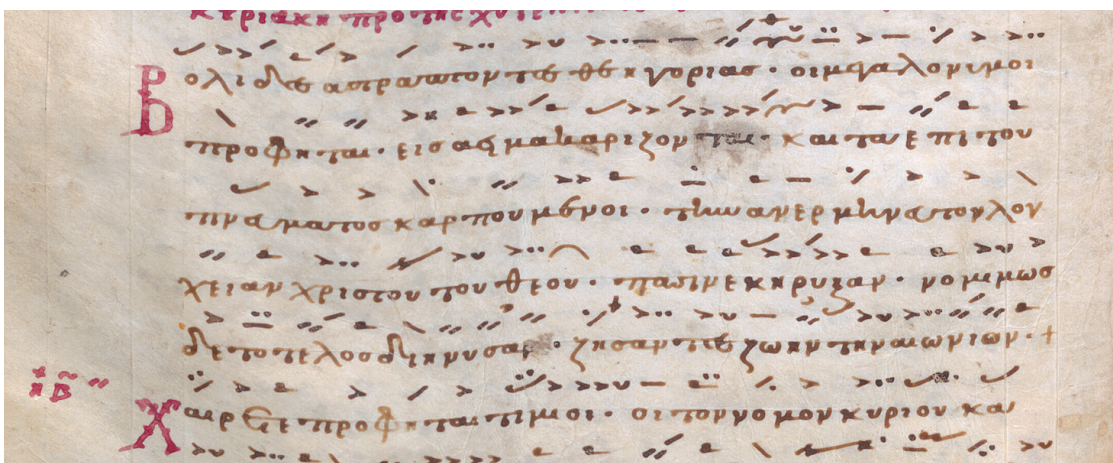 κυριακη προ της χυ γενν
Βολιδες αστραπτοντες θεηγοριας · οι μεγαλονιμοι
προφηται · εις αει μακαριζονται · και τα επι του
πνατος καρπουμενοι · την ανερμηνευτον λον
χειαν χριστου του θεου · πασιν εκηρυξαν · νομιμως
δε το τελος διηνυσαν · ζησαντες ζωην την αιωνιων · +
ηχ β
Χαιρετε προφηται τιμιοι · οι τον νομον κυριου κα